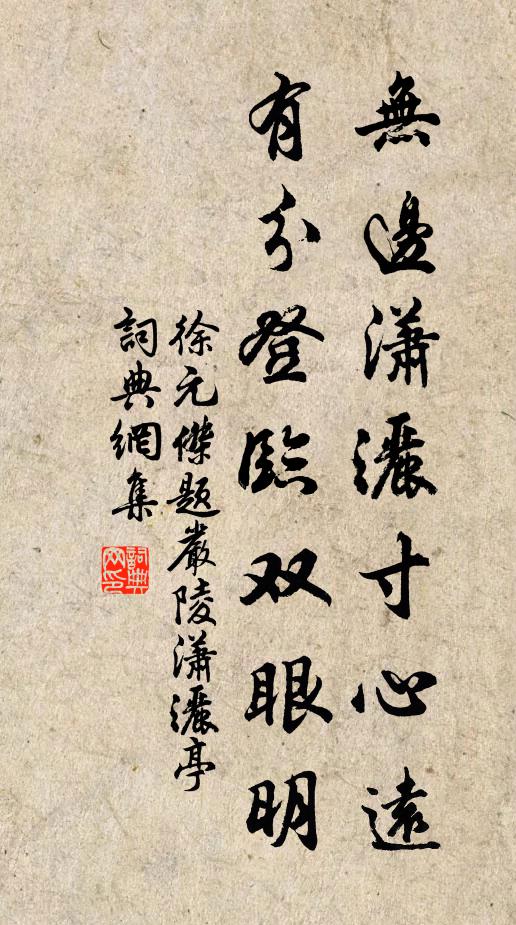 無邊瀟灑寸心遠
有分登臨双眼明
徐元傑題嚴陵瀟灑亭
詞典網集
詞典網印